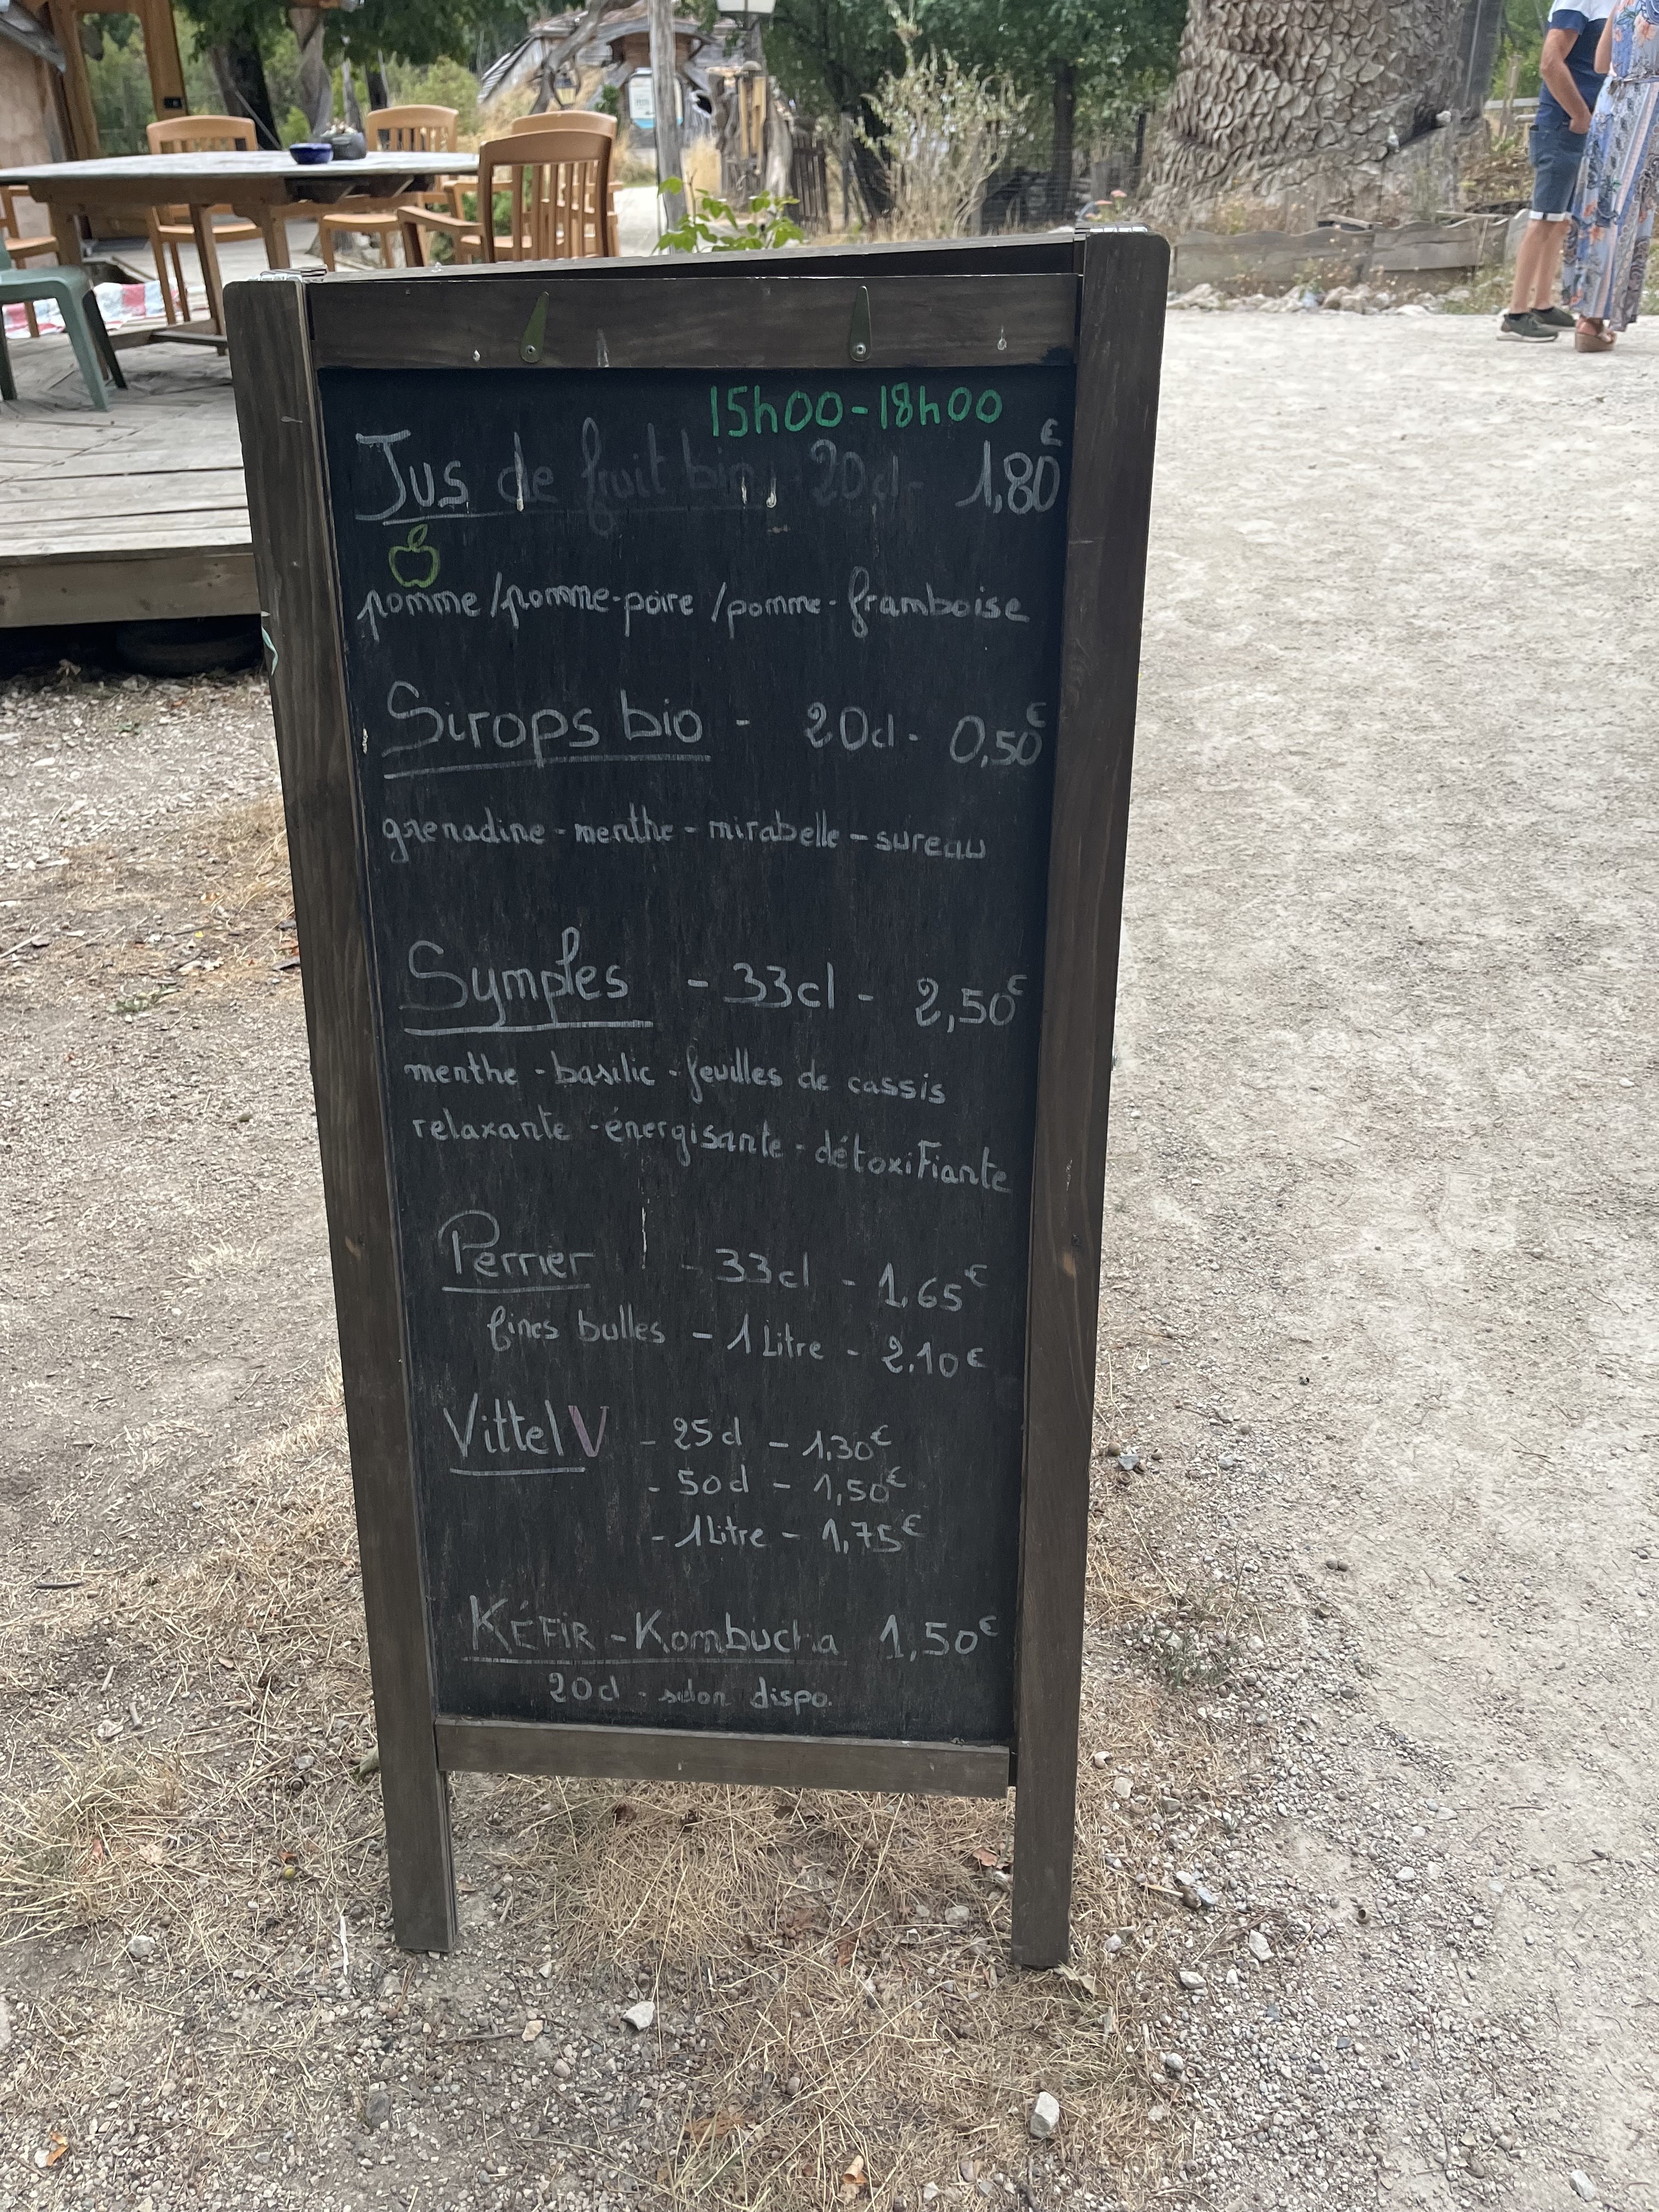 15h00-18h00
Jus de fruit bio 20cl- 1,80€
pomme/pomme-poire/pomme-framboise
Sirops bio - 20cl- 0,50€
grenadine-menthe-mirabelle-sureau
Symples - 33cl - 2,50€
menthe -basilic -feuilles de cassis
relaxante -énergisante -détoxifiante
Perrier - 33cl - 1,65€
fines bulles - 1 Litre - 2.10€
Vittel V - 25cl - 1,30€
- 50cl - 1,50€
- 1Litre - 1,75€
KÉFIR - Kombucha 1,50€
20cl - selon dispo.